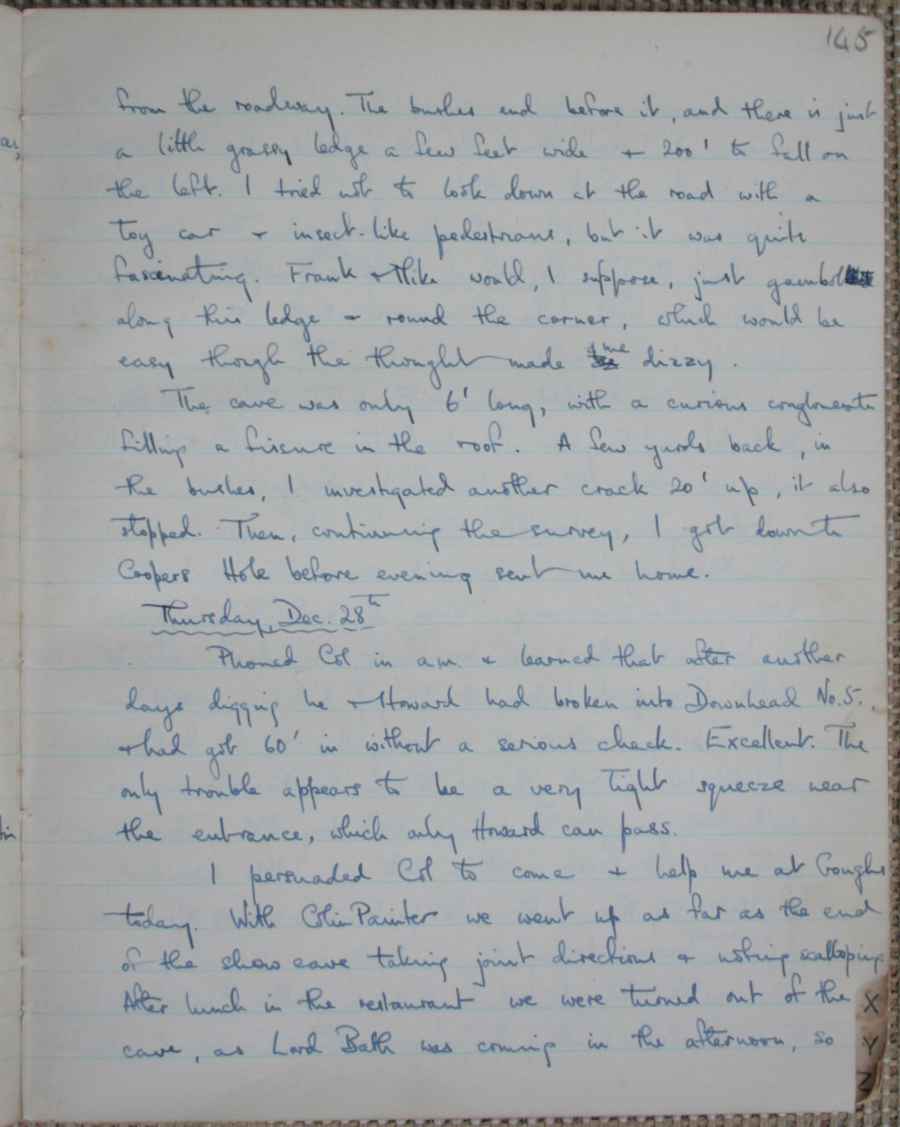 145
from the roadway. The bushes end before it, and there is just
a little grassy ledge a few feet wide + 200' to fall on
the left. I tried not to look down at the road with a
toy car + insect-like pedestrians, but it was quite
fascinating. Frank + Mike would, I suppose, just gambol
along this ledge + round the corner, which would be
easy though the thought made me dizzy.
The cave was only 6' long, with a curious conglomerate
filling a fissure in the roof. A few yards back, in
the bushes, I investigated another crack 20' up, it also
stopped. Then, continuing the survey, I got down to
Coopers Hole before evening sent me home.
Thursday, Dec. 28th
Phoned Col in a.m. + learned that after another
days digging he + Howard had broken into Downhead No.5.
+ had got 60' in without a serious check. Excellent. The
only trouble appears to be a very tight squeeze near
the entrance, which only Howard can pass.
I persuaded Col to come + help me at Goughs
today. With Colin Painter we went up as far as the end
of the show cave taking joint directions + noting scallopings
After lunch in the restaurant we were turned out of the
cave, as Lord Bath was coming in the afternoon, so
X
Y
Z